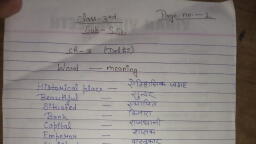 Class - 3rd
Page no. - 1
Sub - S.St
Ch - 3 (Delhi)
Word — meaning
Historical place — ऐतिहासिक जगह
Beautiful — सुन्दर
Situated — स्थापित
Bank — किनारा
Capital — राजधानी
Emperor — शासक